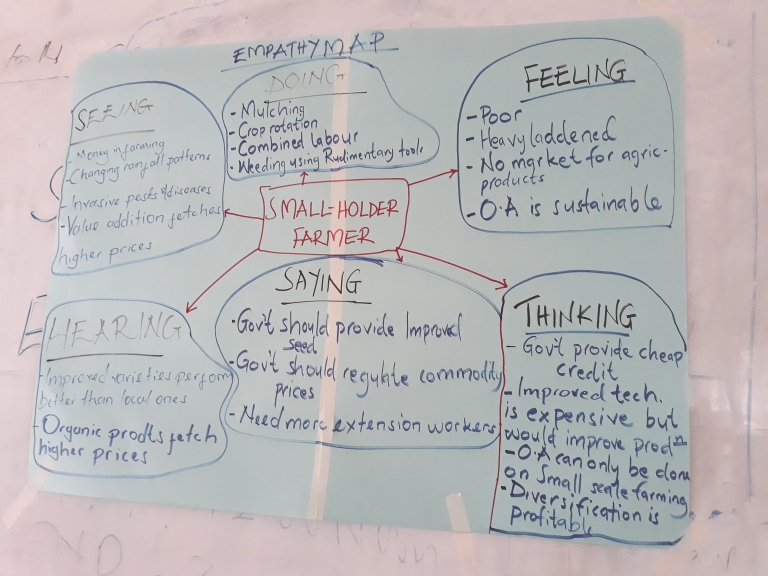 EMPATHY MAP
SEEING
- Money in farming
- Changing rainfall patterns
- Invasive pests & diseases
- Value addition fetches
higher prices
DOING
- Mulching
- Crop rotation
- Combined labour
- Weeding using Rudimentary tools
FEELING
- Poor
- Heavy laddened
- No market for agric-
products
- O.A is sustainable
SMALL-HOLDER
FARMER
HEARING
- Improved varieties perform
better than local ones
- Organic prodts fetch
higher prices
SAYING
- Gov't should provide Improved
seed
- Gov't should regulate commodity
prices
- Need more extension workers
THINKING
- Gov't provide cheap
credit
- Improved tech.
is expensive but
would improve prodⁿ
- O.A can only be done
on Small scale farming
- Diversification is
profitable